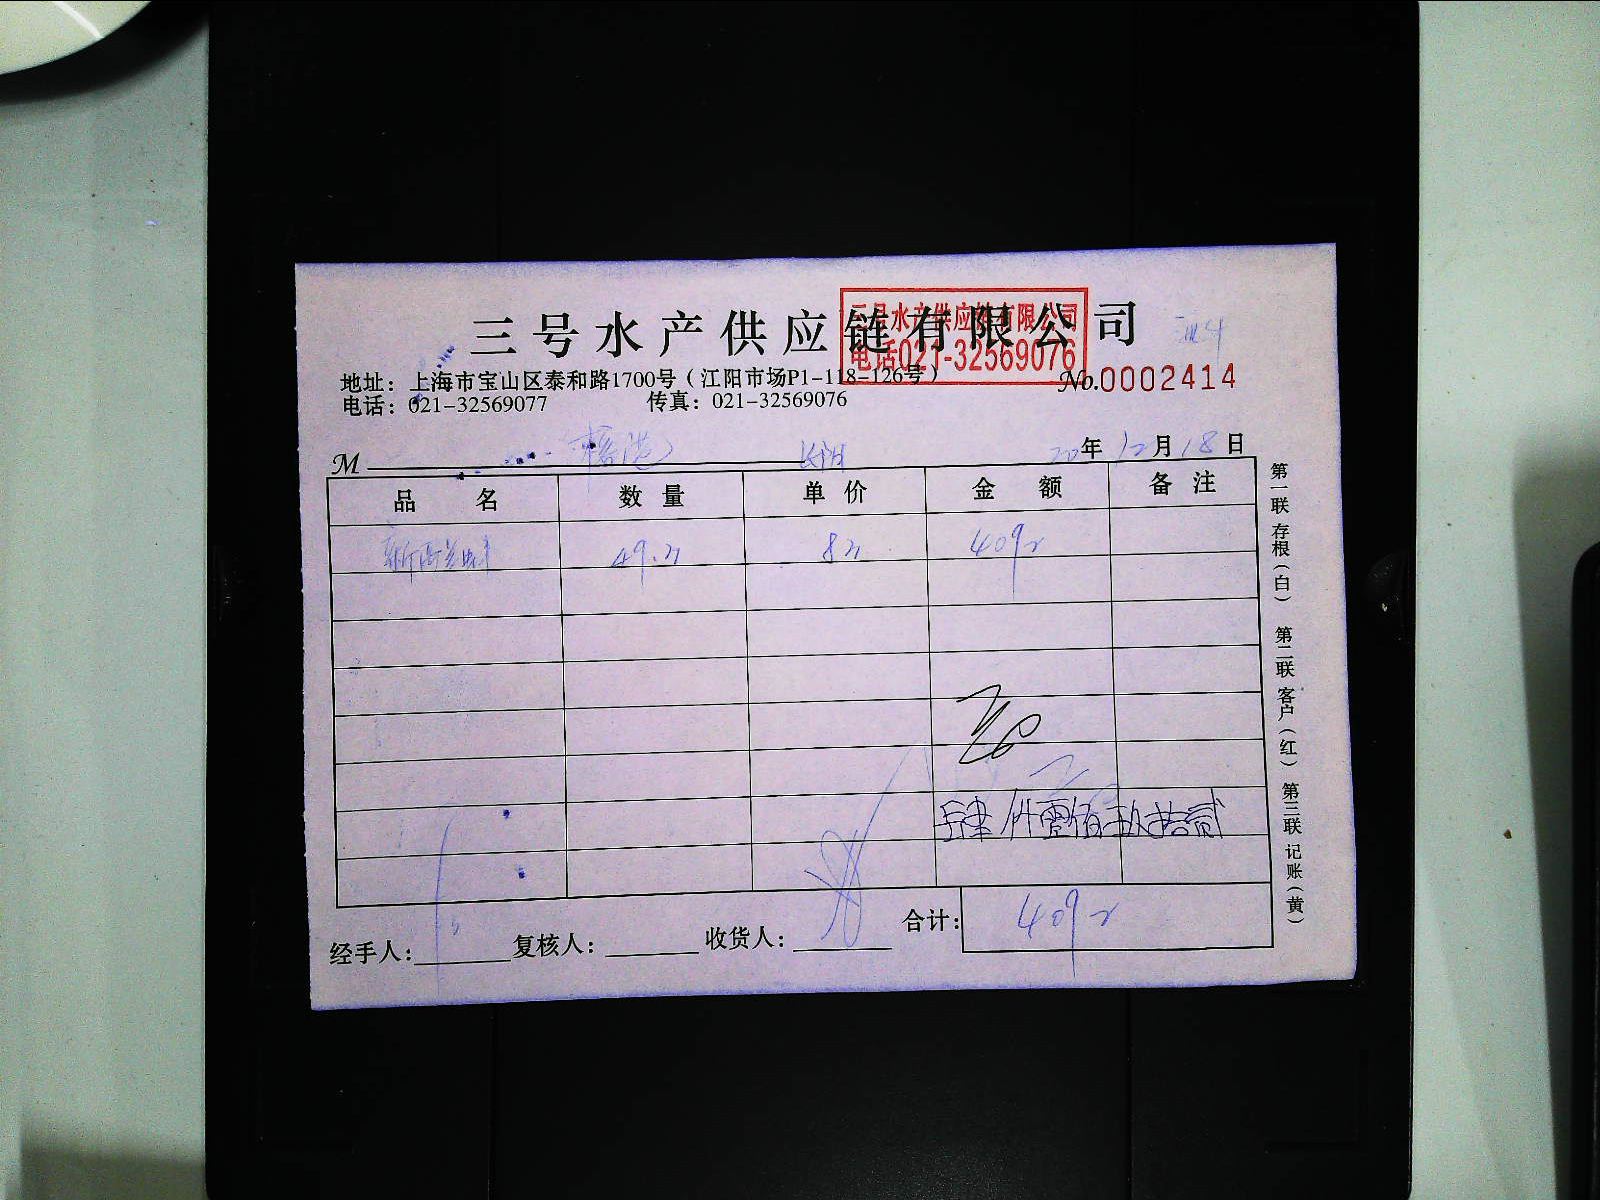 三号水产供应链有限公司
三号水产供应链有限公司
电话021-32569076
地址：上海市宝山区泰和路1700号（江阳市场P1-118-126号）
No.0002414
电话：021-32569077 传真：021-32569076
M 20年12月18日
品名 数量 单价 金额 备注
4092
肆仟零佰玖拾贰
经手人： 复核人： 收货人： 合计：4092
第一联 存根（白） 第二联 客户（红） 第三联 记账（黄）